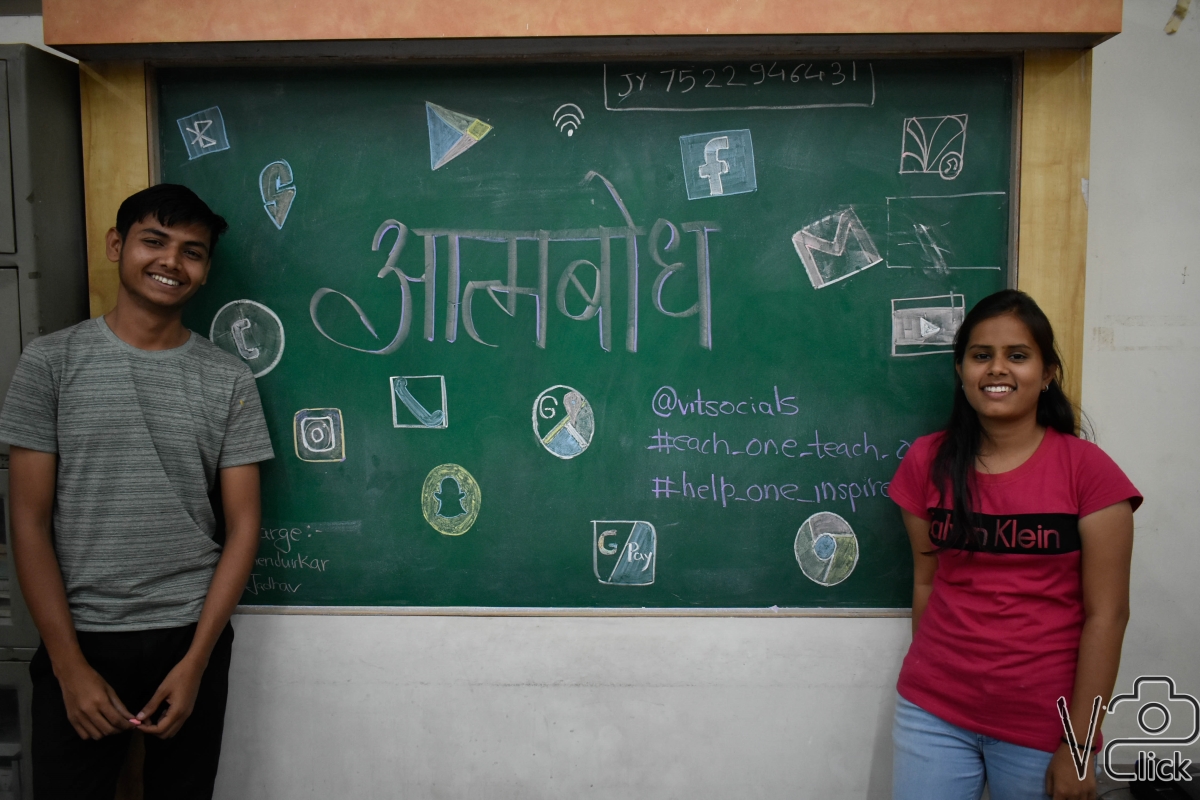 JY 7522946431
आत्मबोध
@vitsocials
#each_one_teach_
#help_one_inspire
G
G Pay
arge:-
endurkar
Jadhav
Calvin Klein
V Click